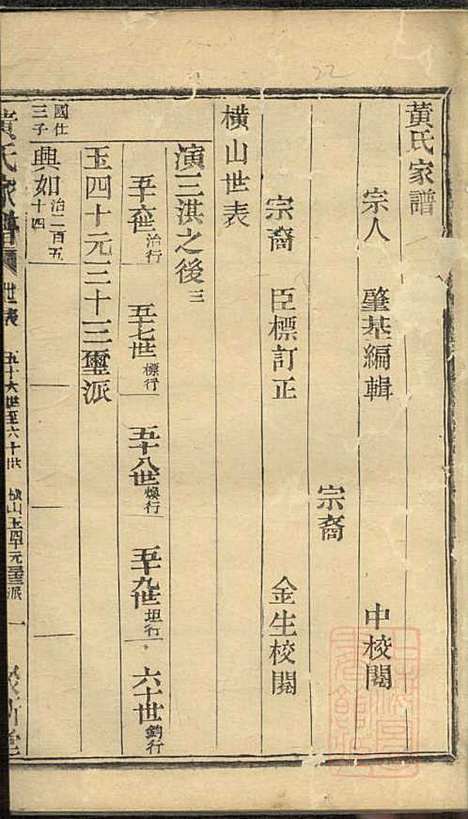 黄氏家譜
宗人 肇基編輯 中校閱
宗裔
宗裔 臣標訂正 金生校閱
橫山世表
演三淇之後三
五十六世治行 五十七世標行 五十八世煥行 五十九世坦行 六十世鈞行
玉四十元三十三璽派
國仕三子 興如治二百五十四
黄氏家譜 世表 五十六世至六十世 橫山玉四十元三璽派 一
22